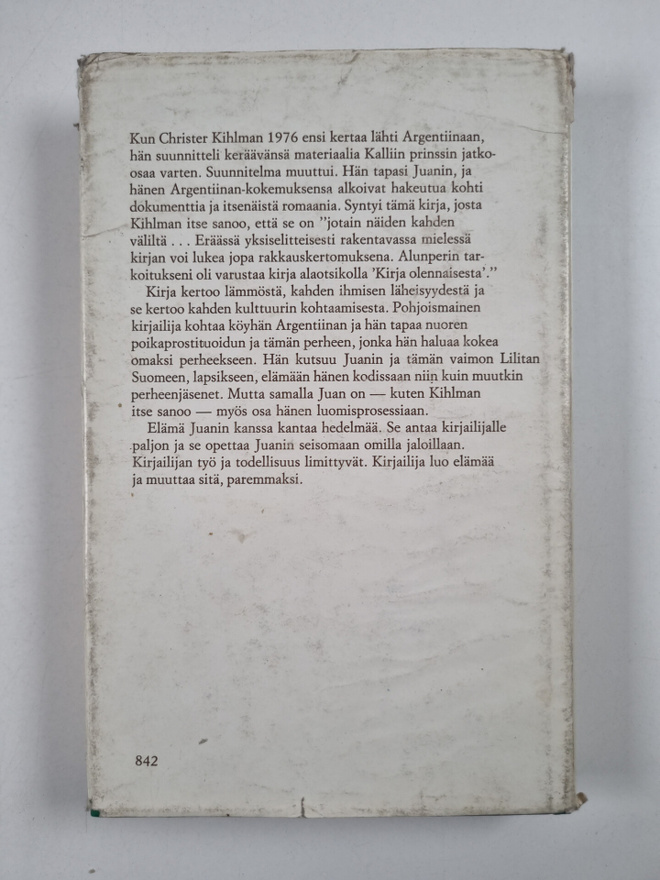 Kun Christer Kihlman 1976 ensi kertaa lähti Argentiinaan,
hän suunnitteli keräävänsä materiaalia Kalliin prinssin jatko-
osaa varten. Suunnitelma muuttui. Hän tapasi Juanin, ja
hänen Argentiinan-kokemuksensa alkoivat hakeutua kohti
dokumenttia ja itsenäistä romaania. Syntyi tämä kirja, josta
Kihlman itse sanoo, että se on ”jotain näiden kahden
väliltä . . . Eräässä yksiselitteisesti rakentavassa mielessä
kirjan voi lukea jopa rakkauskertomuksena. Alunperin tar-
koitukseni oli varustaa kirja alaotsikolla ’Kirja olennaisesta’.”
Kirja kertoo lämmöstä, kahden ihmisen läheisyydestä ja
se kertoo kahden kulttuurin kohtaamisesta. Pohjoismainen
kirjailija kohtaa köyhän Argentiinan ja hän tapaa nuoren
poikaprostituoidun ja tämän perheen, jonka hän haluaa kokea
omaksi perheekseen. Hän kutsuu Juanin ja tämän vaimon Lilitan
Suomeen, lapsikseen, elämään hänen kodissaan niin kuin muutkin
perheenjäsenet. Mutta samalla Juan on — kuten Kihlman
itse sanoo — myös osa hänen luomisprosessiaan.
Elämä Juanin kanssa kantaa hedelmää. Se antaa kirjailijalle
paljon ja se opettaa Juanin seisomaan omilla jaloillaan.
Kirjailijan työ ja todellisuus limittyvät. Kirjailija luo elämää
ja muuttaa sitä, paremmaksi.
842